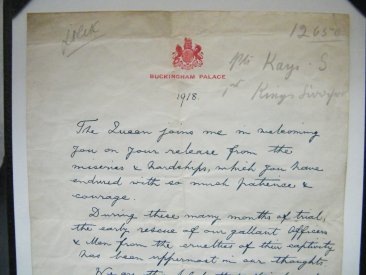 12650
Pte Kays. S
1st Kings Liverpool
BUCKINGHAM PALACE
1918.
The Queen joins me in welcoming
you on your release from the
miseries & hardships, which you have
endured with so much patience &
courage.
During these many months of trial,
the early rescue of our gallant Officers
& Men from the cruelties of their captivity
has been uppermost in our thoughts.
We are